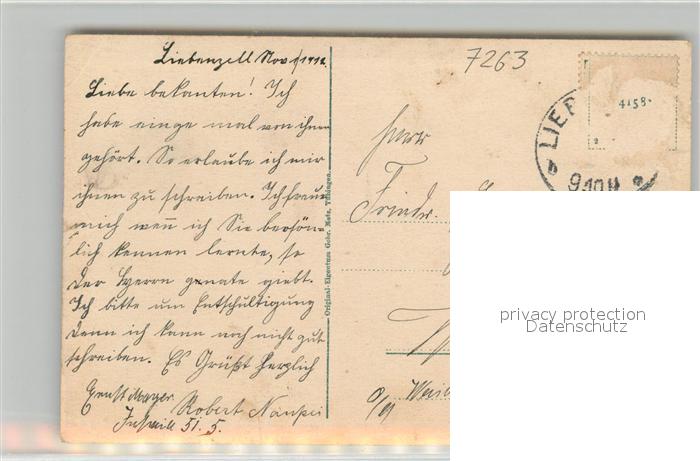 Liebenzell Nov 1912.
7263
Liebe bekanten! Ich
habe einge mal von ihnen
gehört. So erlaube ich mir
ihnen zu schreiben. Ich freue
mich wenn ich Sie bersön-
lich kennen lernte, so
der Herrn genate giebt.
Ich bitte um Entschultigung
denn ich kann noch nicht gut
schreiben. Es Grüßt herzlich
Ernst Mayer
Robert
51. 5.
Original-Eigentum Gebr. Metz, Tübingen.
4158
LIEB
b
9.10.V
Herr
Friedr.
privacy protection
Datenschutz